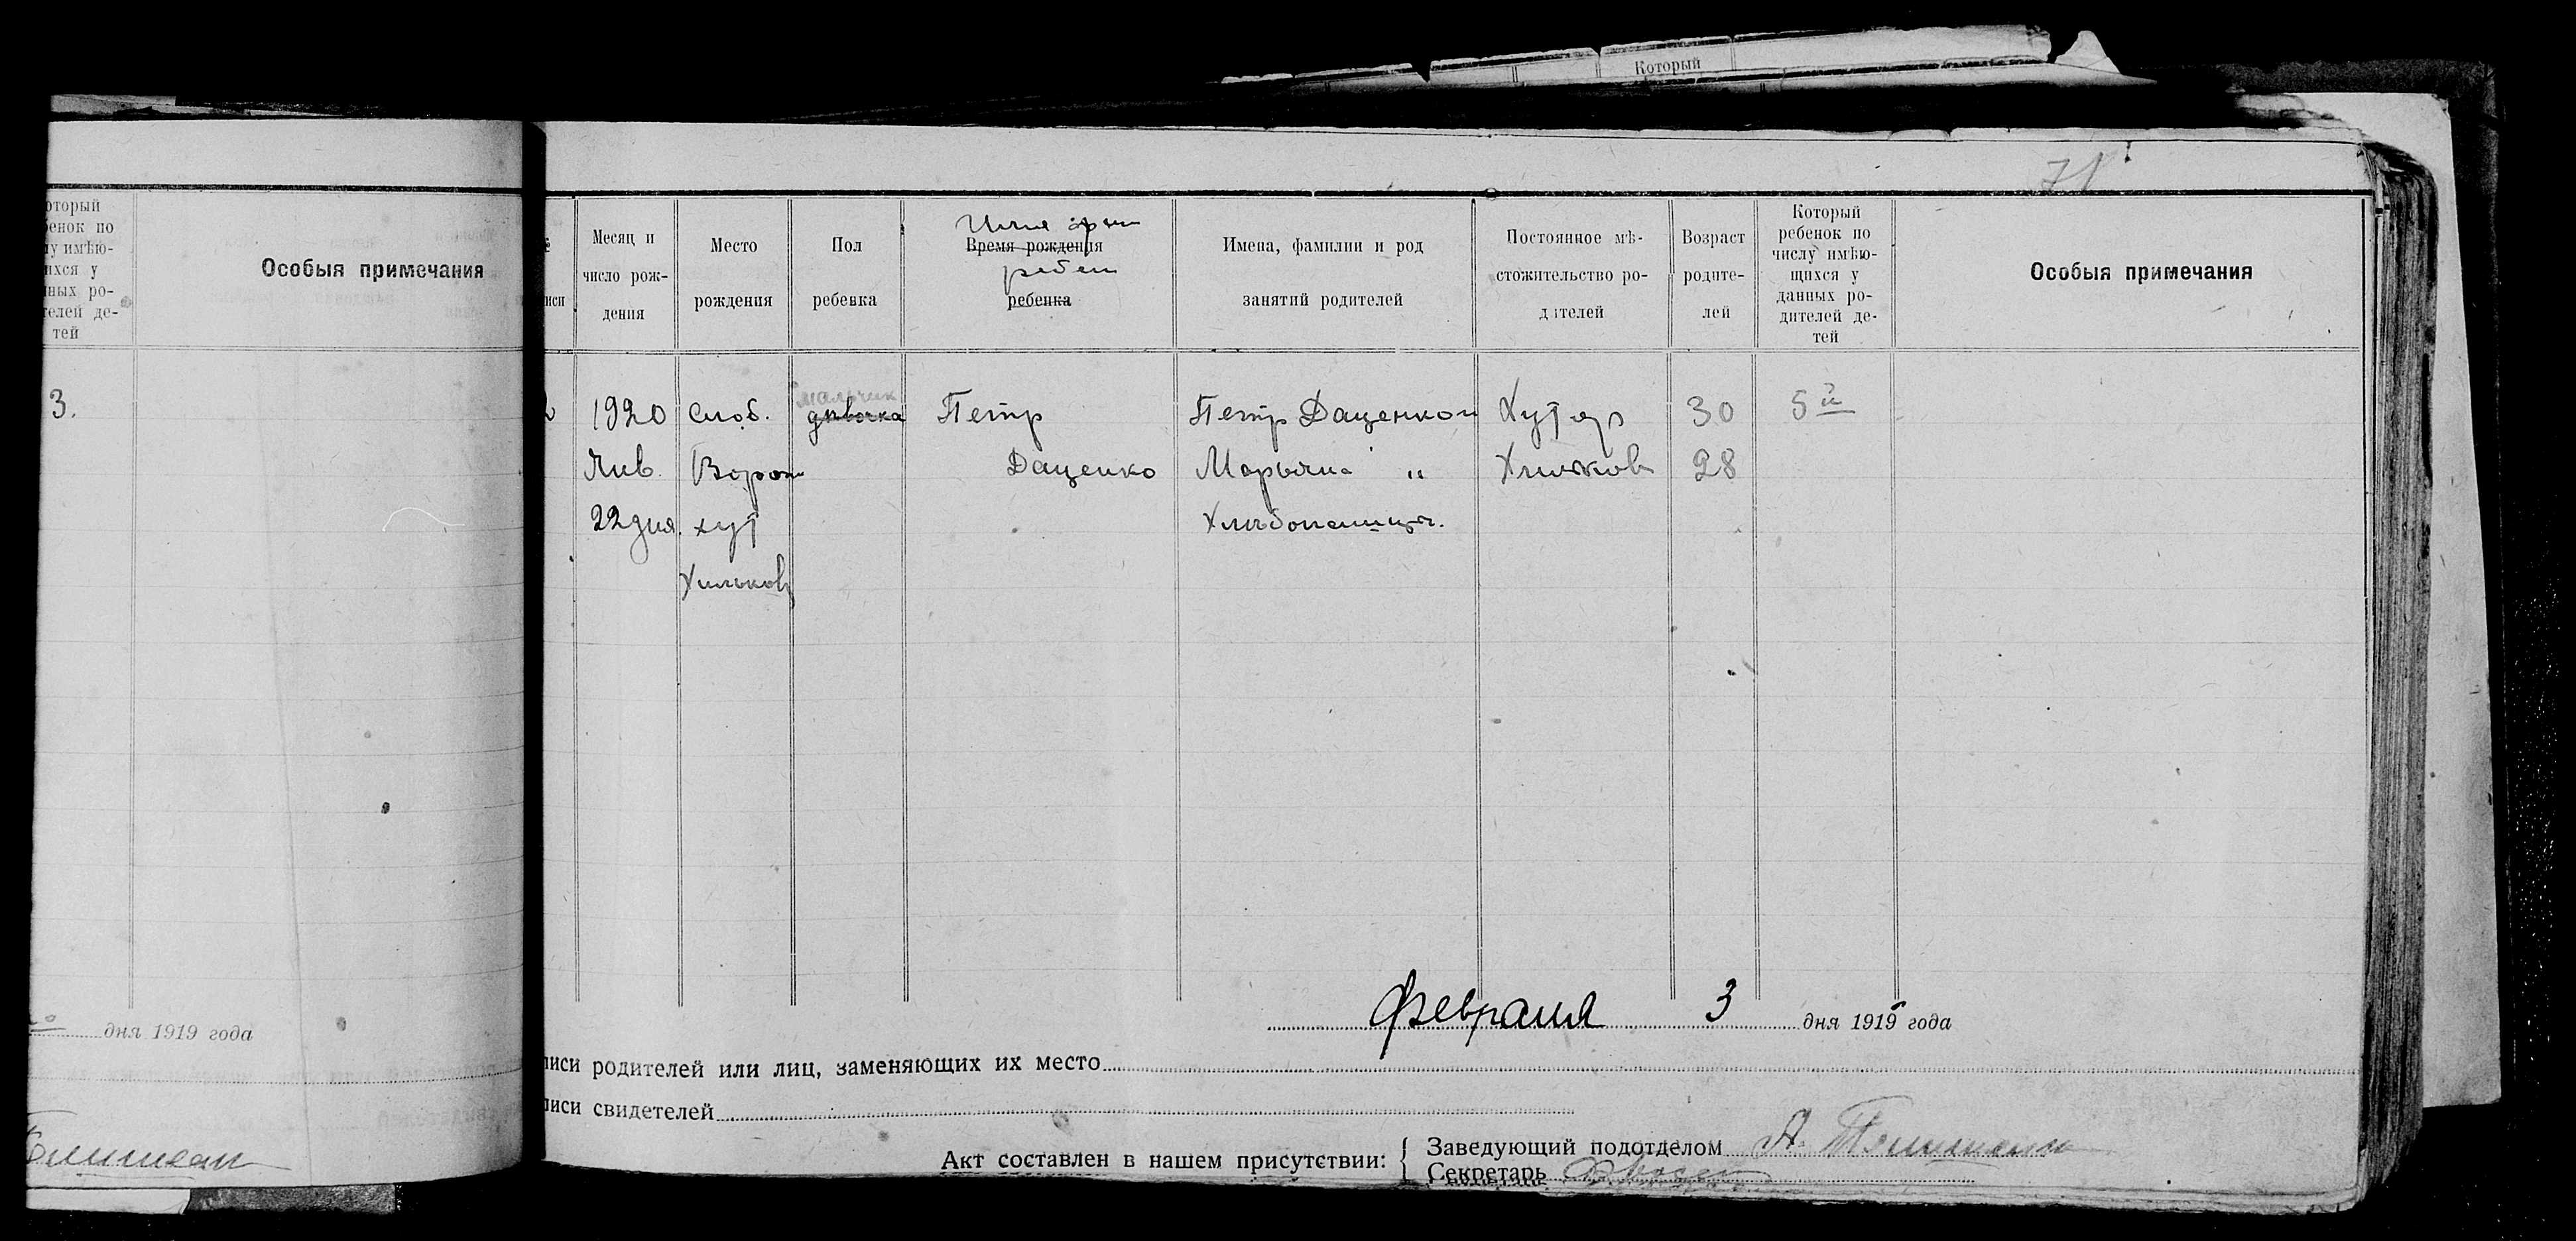 Который
71
оторый
бенок по
лу имѣю-
щихся у
нных ро-
телей де-
тей
Особыя примечания
3.
дня 1919 года
№
иси
Месяц и
число рож-
дения
Место
рождения
Пол
ребенка
Имя
Время рождения
ребенка
Имена, фамилии и род
занятий родителей
Постоянное мѣ-
стожительство ро-
дителей
Возраст
родите-
лей
Который
ребенок по
числу имѣю-
щихся у
данных ро-
дителей де-
тей
Особыя примечания
1920
Янв.
22 дня.
Слоб.
Ворон
хут
Хильков
мальчик
дѣвочка
Петр
Даценко
Петр Даценко
Марьяна "
Хлѣбопашцы.
Хутор
Хильков
30
28
5й
февраля 3 дня 1919 года
писи родителей или лиц, заменяющих их место
писи свидетелей
Акт составлен в нашем присутствии:
Заведующий подотделом
Секретарь